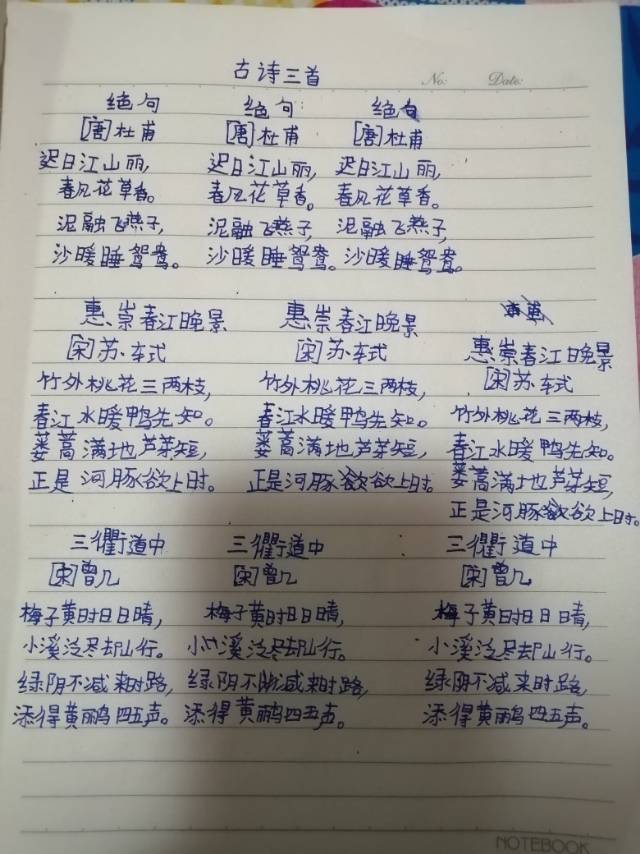 古诗三首
No: Date:
绝句 绝句 绝句
[唐]杜甫 [唐]杜甫 [唐]杜甫
迟日江山丽, 迟日江山丽, 迟日江山丽,
春风花草香。 春风花草香。 春风花草香。
泥融飞燕子, 泥融飞燕子, 泥融飞燕子,
沙暖睡鸳鸯。 沙暖睡鸳鸯。 沙暖睡鸳鸯。
惠崇春江晚景 惠崇春江晚景
[宋]苏轼 [宋]苏轼 惠崇春江晚景
竹外桃花三两枝, 竹外桃花三两枝, [宋]苏轼
春江水暖鸭先知。 春江水暖鸭先知。 竹外桃花三两枝,
蒌蒿满地芦芽短, 蒌蒿满地芦芽短, 春江水暖鸭先知。
正是河豚欲上时。 正是河豚欲上时。 蒌蒿满地芦芽短,
正是河豚欲上时。
三衢道中 三衢道中 三衢道中
[宋]曾几 [宋]曾几 [宋]曾几
梅子黄时日日晴, 梅子黄时日日晴, 梅子黄时日日晴,
小溪泛尽却山行。 小溪泛尽却山行。 小溪泛尽却山行。
绿阴不减来时路, 绿阴不减来时路, 绿阴不减来时路,
添得黄鹂四五声。 添得黄鹂四五声。 添得黄鹂四五声。
NOTEBOOK